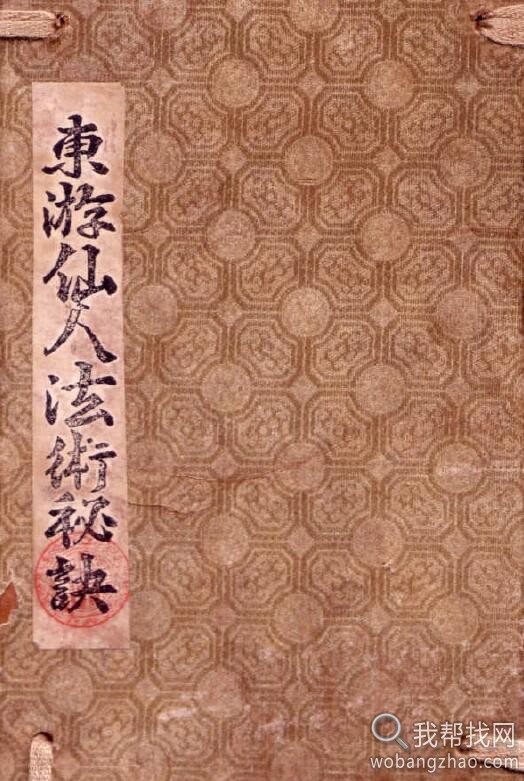 東游仙人法術秘訣
我帮找网
wobangzhao.com